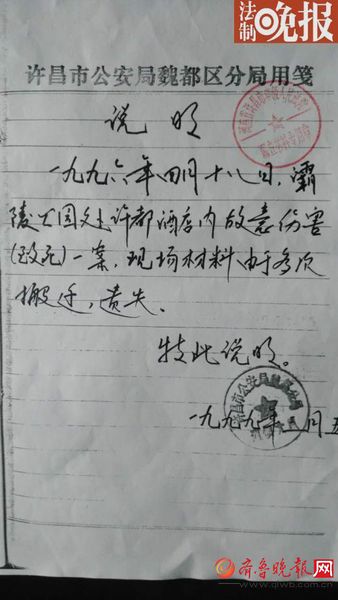 法制晚报
许昌市公安局魏都区分局用笺
说明
一九九六年四月十八日，灞
陵公园处许都酒店内故意伤害
(致死)一案，现场材料由于多次
搬迁，遗失。
特此说明。
许昌市公安局魏都分局
一九九九年 月五
齐鲁晚报网
www.qlwb.com.cn